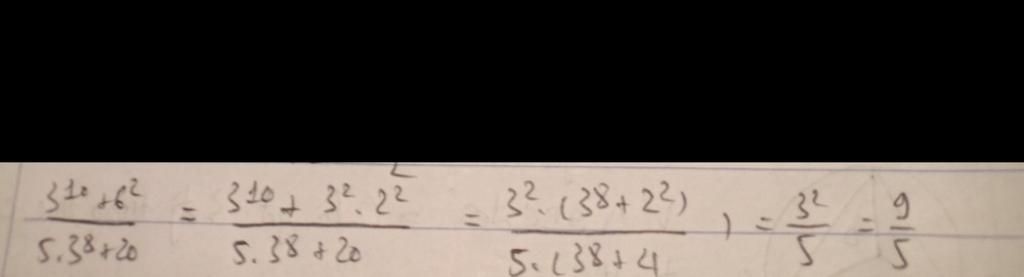 3¹⁰+6² / 5.3⁸+20 = 3¹⁰+ 3².2² / 5.3⁸+20 = 3².(3⁸+2²) / 5.(3⁸+4 ) = 3² / 5 = 9 / 5